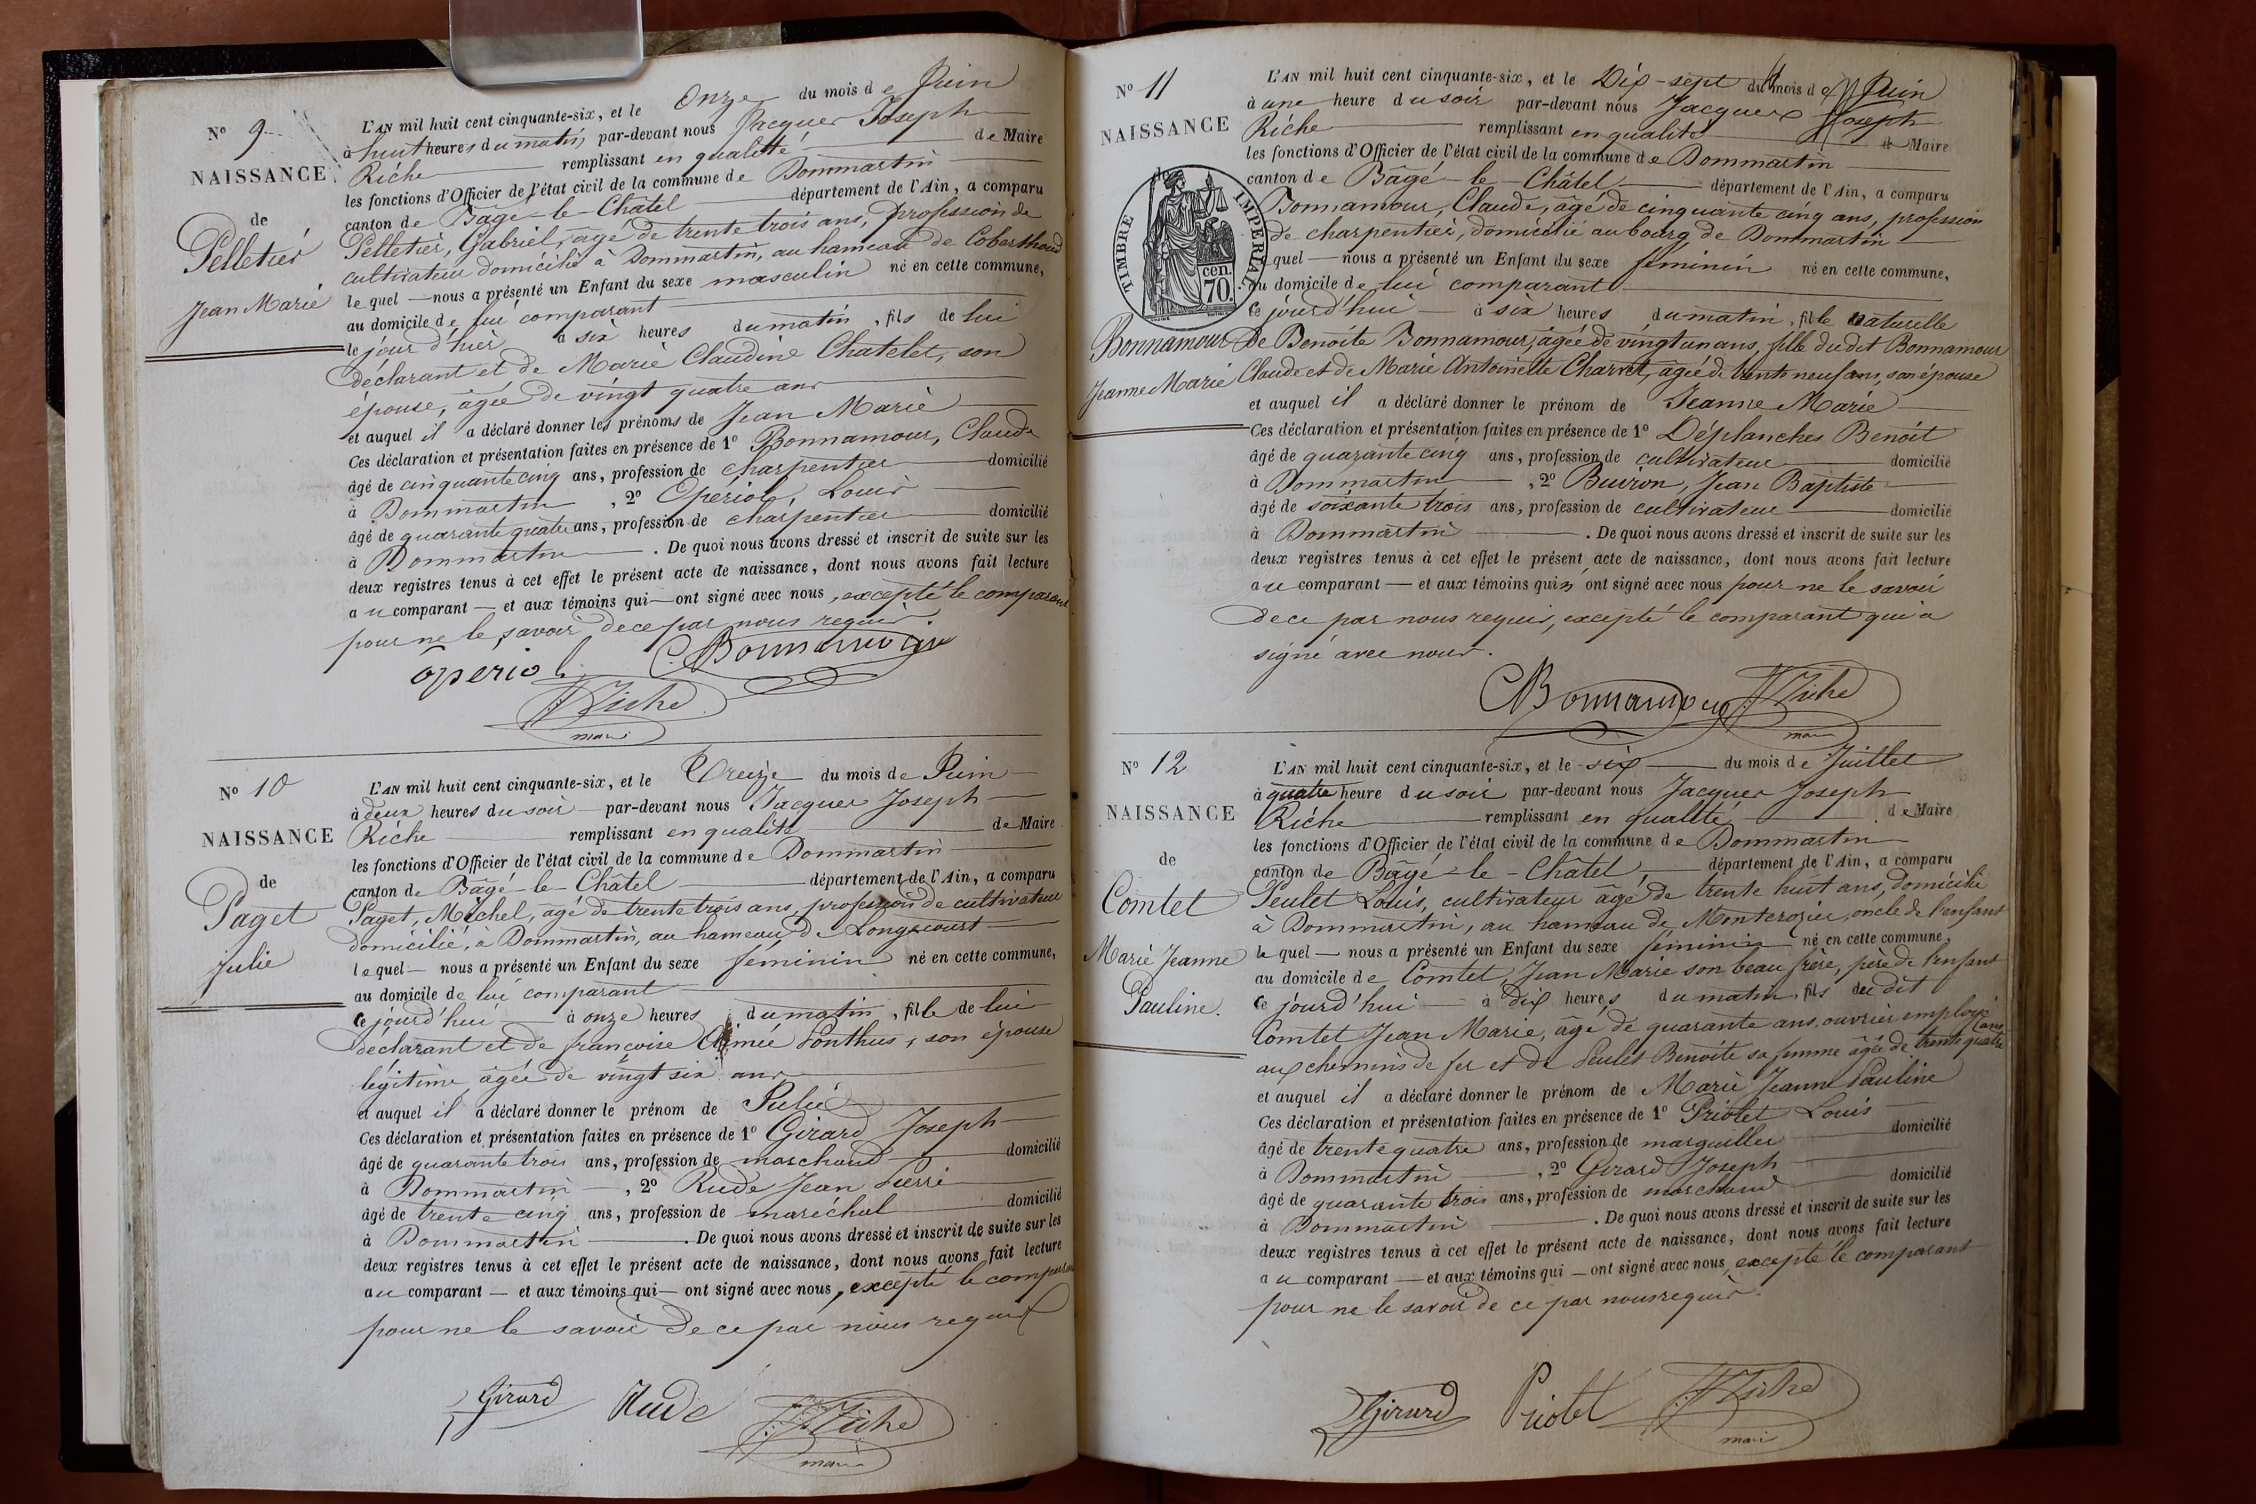 N° 9
NAISSANCE
de
Pelletier
Jean Marie
L'AN mil huit cent cinquante-six, et le Onze du mois de Juin
à huit heures du matin, par-devant nous Jacques Joseph
Riche remplissant en qualité de Maire
les fonctions d'Officier de l'état civil de la commune de Dommartin
canton de Bâgé-le-Châtel département de l'Ain, a comparu
Pelletier, Gabriel, âgé de trente trois ans, profession de
cultivateur domicilié à Dommartin, au hameau de Coberthoud
lequel nous a présenté un Enfant du sexe masculin né en cette commune,
au domicile de lui comparant
le jour d'hier à six heures du matin, fils de lui
déclarant et de Marie Claudine Chatelet, son
épouse, âgée de vingt quatre ans
et auquel il a déclaré donner les prénoms de Jean Marie
Ces déclaration et présentation faites en présence de 1° Bonnamour, Claude
âgé de cinquante cinq ans, profession de charpentier domicilié
à Dommartin, 2° Operiol, Louis
âgé de quarante quatre ans, profession de charpentier domicilié
à Dommartin. De quoi nous avons dressé et inscrit de suite sur les
deux registres tenus à cet effet le présent acte de naissance, dont nous avons fait lecture
au comparant et aux témoins qui ont signé avec nous, excepté le comparant
pour ne le savoir de ce par nous requis.
Operiol C. Bonnamour
JJ Riche
maire
N° 10
NAISSANCE
de
Paget
Julie
L'AN mil huit cent cinquante-six, et le Treize du mois de Juin
à deux heures du soir par-devant nous Jacques Joseph
Riche remplissant en qualité de Maire
les fonctions d'Officier de l'état civil de la commune de Dommartin
canton de Bâgé-le-Châtel département de l'Ain, a comparu
Paget, Michel, âgé de trente trois ans, profession de cultivateur
domicilié, à Dommartin, au hameau de Longecourt
lequel nous a présenté un Enfant du sexe féminin né en cette commune,
au domicile de lui comparant
ce jourd'hui à onze heures du matin, fille de lui
déclarant et de françoise Aimée Ponthus, son épouse
légitime âgée de vingt six ans
et auquel il a déclaré donner le prénom de Julie
Ces déclaration et présentation faites en présence de 1° Girard Joseph
âgé de quarante trois ans, profession de marchand domicilié
à Dommartin, 2° Rude Jean Pierre
âgé de trente cinq ans, profession de maréchal domicilié
à Dommartin. De quoi nous avons dressé et inscrit de suite sur les
deux registres tenus à cet effet le présent acte de naissance, dont nous avons fait lecture
au comparant et aux témoins qui ont signé avec nous, excepté le comparant
pour ne le savoir de ce par nous requis
Girard Rude JJ Riche
maire
N° 11
NAISSANCE
TIMBRE IMPERIAL
cen. 70.
Bonnamour
Jeanne Marie
L'AN mil huit cent cinquante-six, et le Dix-sept du mois de Juin
à une heure du soir par-devant nous Jacques Joseph
Riche remplissant en qualité de Maire
les fonctions d'Officier de l'état civil de la commune de Dommartin
canton de Bâgé-le-Châtel département de l'Ain, a comparu
Bonnamour, Claude, âgé de cinquante cinq ans, profession
de charpentier, domicilié au bourg de Dommartin
lequel nous a présenté un Enfant du sexe féminin né en cette commune,
au domicile de lui comparant
ce jourd'hui à six heures du matin, fille naturelle
de Benoite Bonnamour, âgée de vingt un ans, fille dudit Bonnamour
Claude et de Marie Antoinette Charvet, âgée de neuf ans, son épouse
et auquel il a déclaré donner le prénom de Jeanne Marie
Ces déclaration et présentation faites en présence de 1° Déplanches Benoit
âgé de quarante cinq ans, profession de cultivateur domicilié
à Dommartin, 2° Buiron, Jean Baptiste
âgé de soixante trois ans, profession de cultivateur domicilié
à Dommartin. De quoi nous avons dressé et inscrit de suite sur les
deux registres tenus à cet effet le présent acte de naissance, dont nous avons fait lecture
au comparant et aux témoins qui n'ont signé avec nous pour ne le savoir
de ce par nous requis, excepté le comparant qui a
signé avec nous.
CBonnamour JJ Riche
maire
N° 12
NAISSANCE
de
Comtet
Marie Jeanne
Pauline.
L'AN mil huit cent cinquante-six, et le six du mois de Juillet
à quatre heure du soir par-devant nous Jacques Joseph
Riche remplissant en qualité de Maire
les fonctions d'Officier de l'état civil de la commune de Dommartin
canton de Bâgé-le-Châtel, département de l'Ain, a comparu
Peulet Louis, cultivateur âgé de trente huit ans, domicilié
à Dommartin, au hameau de Monterozier, oncle de l'enfant
lequel nous a présenté un Enfant du sexe féminin né en cette commune,
au domicile de Comtet, Jean Marie son beau frère, père de l'enfant
ce jourd'hui à dix heures du matin, fils du dit
Comtet Jean Marie, âgé de quarante ans, ouvrier employé
aux chemins de fer et de Peulet Benoite sa femme âgée de trente quatre ans
et auquel il a déclaré donner le prénom de Marie Jeanne Pauline
Ces déclaration et présentation faites en présence de 1° Priolet Louis
âgé de trente quatre ans, profession de marguiller domicilié
à Dommartin, 2° Girard Joseph
âgé de quarante trois ans, profession de marchand domicilié
à Dommartin. De quoi nous avons dressé et inscrit de suite sur les
deux registres tenus à cet effet le présent acte de naissance, dont nous avons fait lecture
au comparant et aux témoins qui ont signé avec nous, excepté le comparant
pour ne le savoir de ce par nous requis.
Girard Priolet JJ Riche
maire